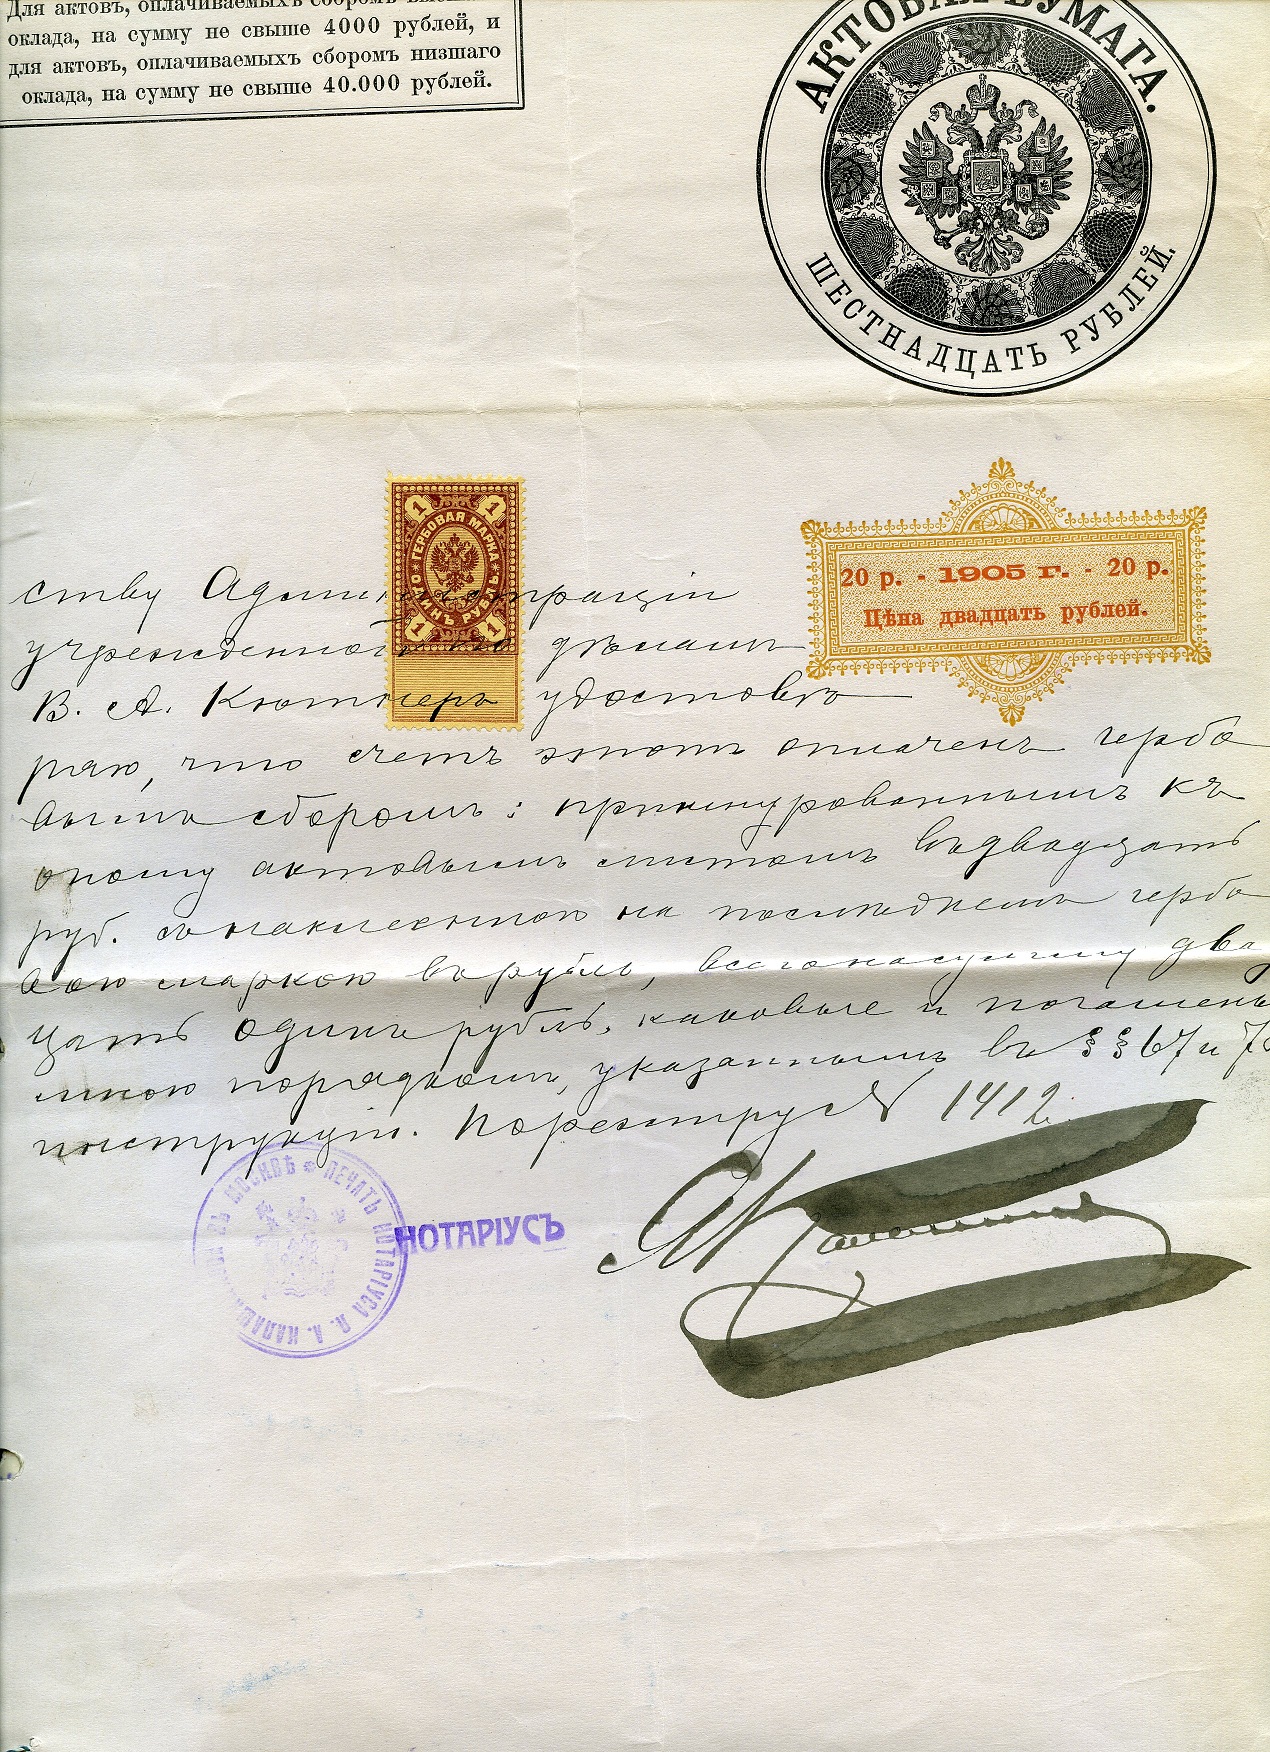 Для актовъ, оплачиваемыхъ сборомъ высшаго
оклада, на сумму не свыше 4000 рублей, и
для актовъ, оплачиваемыхъ сборомъ низшаго
оклада, на сумму не свыше 40.000 рублей.
АКТОВАЯ БУМАГА.
ШЕСТНАДЦАТЬ РУБЛЕЙ.
1 1
ГЕРБОВАЯ МАРКА
ОДИНЪ РУБЛЬ
1 1
20 р. - 1905 г. - 20 р.
Цѣна двадцать рублей.
ству Администраціи
учрежденной по дѣламъ
В. А. Кютнеръ удостовѣ
ряю, что счетъ этотъ оплаченъ гербо
вымъ сборомъ: прошнурованнымъ къ
оному актовымъ листомъ въ двадцать
руб. съ наклеенной на послѣднемъ гербо
вою маркою въ рубль, всего на сумму два
цать одинъ рубль, каковые и погашены
мною порядкомъ, указаннымъ въ §§ 67 и
инструкціи. По реестру № 1412.
ПЕЧАТЬ НОТАРІУСА П. А.
ВЪ МОСКВѢ
НОТАРІУСЪ